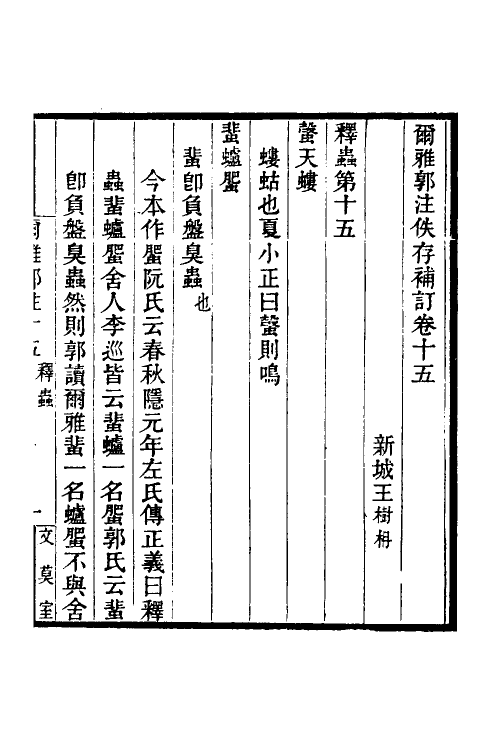 爾雅郭注佚存補訂卷十五
新城王樹枏
釋蟲第十五
螜天螻
螻蛄也夏小正曰螜則鳴
蜚蠦蜰
蜚卽負盤臭蟲也
今本作蜰阮氏云春秋隱元年左氏傳正義曰釋
蟲蜚蠦蜰舍人李巡皆云蜚蠦一名蜰郭氏云蜚
卽負盤臭蟲然則郭讀爾雅蜚一名蠦蜰不與舍
爾雅郭注十五 釋蟲 一 文莫室